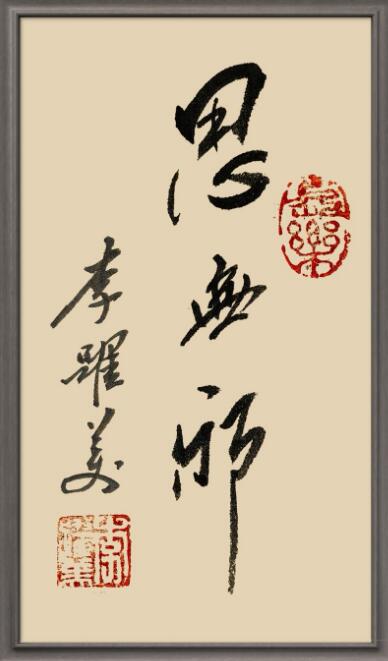 思無邪
李躍美